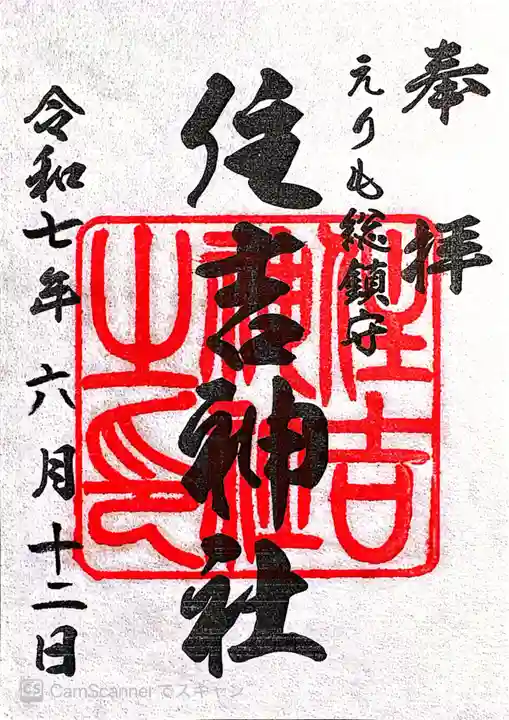 奉拝
えりも総鎮守
住吉神社
令和七年六月十二日
住吉
神社
之印
CS CamScanner でスキャン